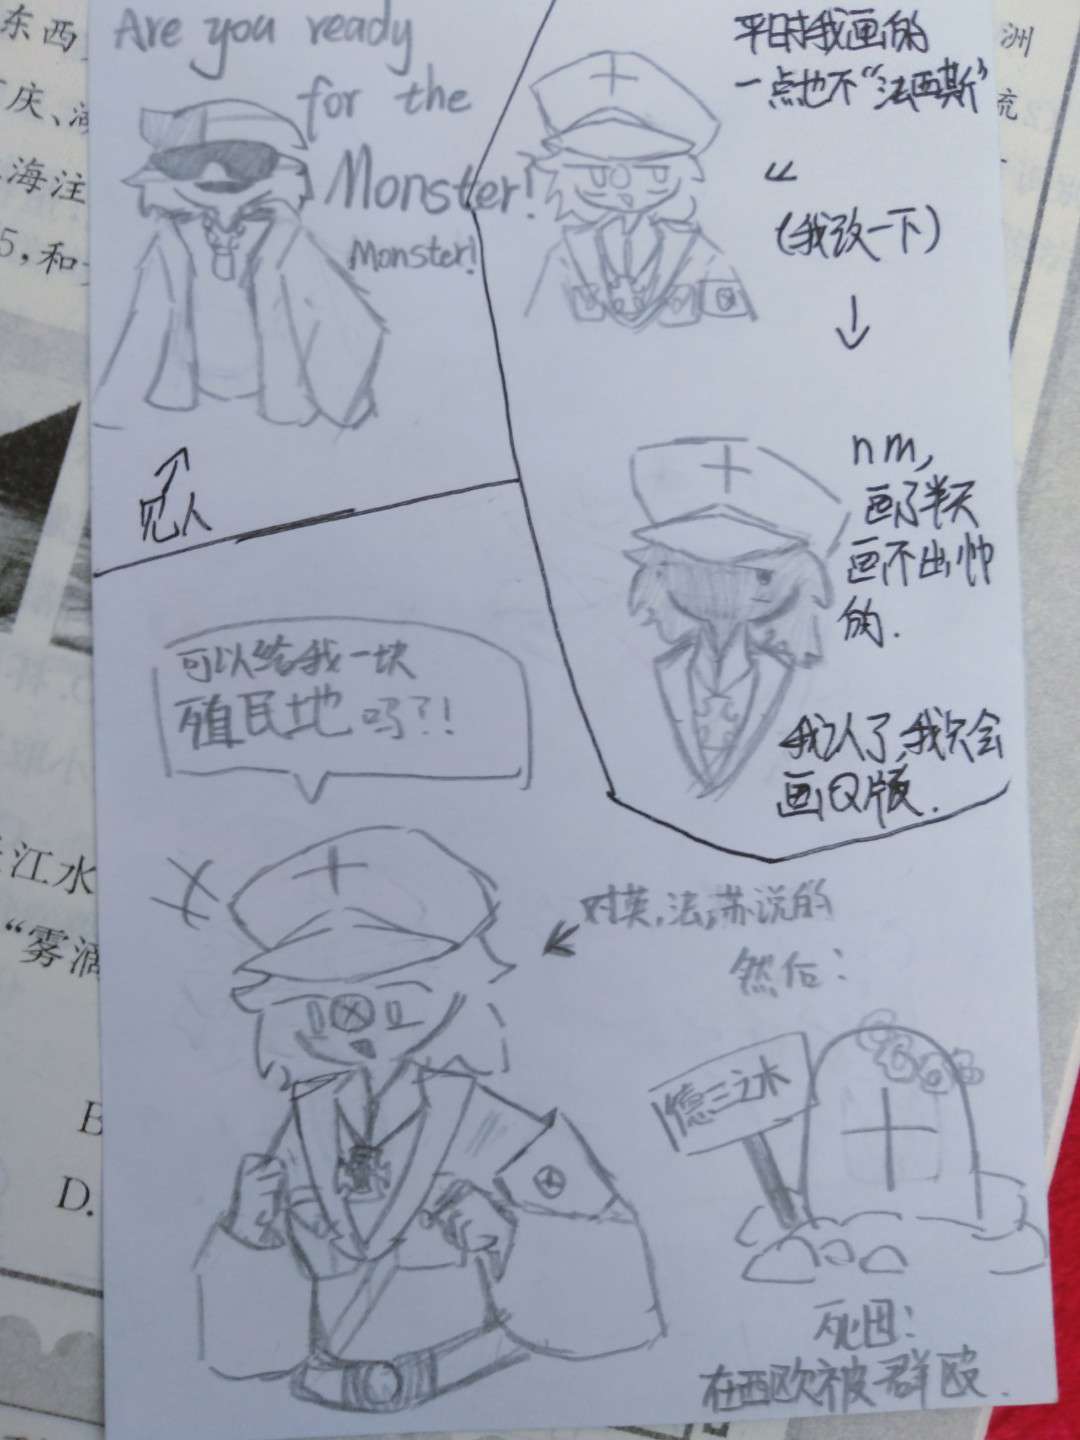 Are you ready
for the
Monster!
Monster!
见人
平时我画的
一点也不“法西斯”
(我改一下)
nm,
画了半天
画不出帅
的.
我认了,我只会
画Q版.
可以给我一块
殖民地吗?!
对英,法,苏说的
然后:
德三之木
死因:
在西欧被群殴.
东西
庆、
海注
5,和
洲
流
江水
“雾滴
B
D.